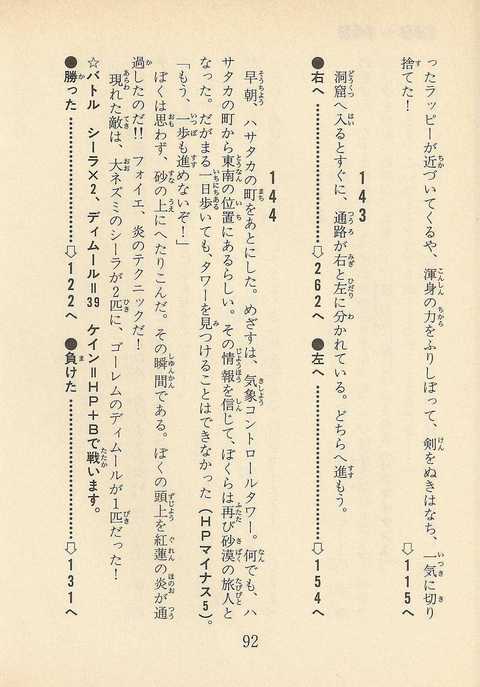 ったラッピーが近づいてくるや、渾身の力をふりしぼって、剣をぬきはなち、一気に切り
捨てた!
⇨115へ
143
洞窟へ入るとすぐに、通路が右と左に分かれている。どちらへ進もう。
●右へ…………⇨262へ ●左へ…………⇨154へ
144
早朝、ハサタカの町をあとにした。めざすは、気象コントロールタワー。何でも、ハ
サタカの町から東南の位置にあるらしい。その情報を信じて、ぼくらは再び砂漠の旅人と
なった。だがまる一日歩いても、タワーを見つけることはできなかった(HPマイナス5)。
「もう、一歩も進めないぞ!」
ぼくは思わず、砂の上にへたりこんだ。その瞬間である。ぼくの頭上を紅蓮の炎が通
過したのだ!! フォイエ、炎のテクニックだ!
現れた敵は、大ネズミのシーラが2匹に、ゴーレムのディムールが1匹だった!
☆バトル シーラ×2、ディムール=39 ケイン=HP+Bで戦います。
●勝った…………⇨122へ ●負けた…………⇨131へ
92